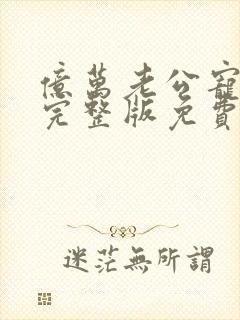 億萬老公寵
完整版免費
迷茫無所謂